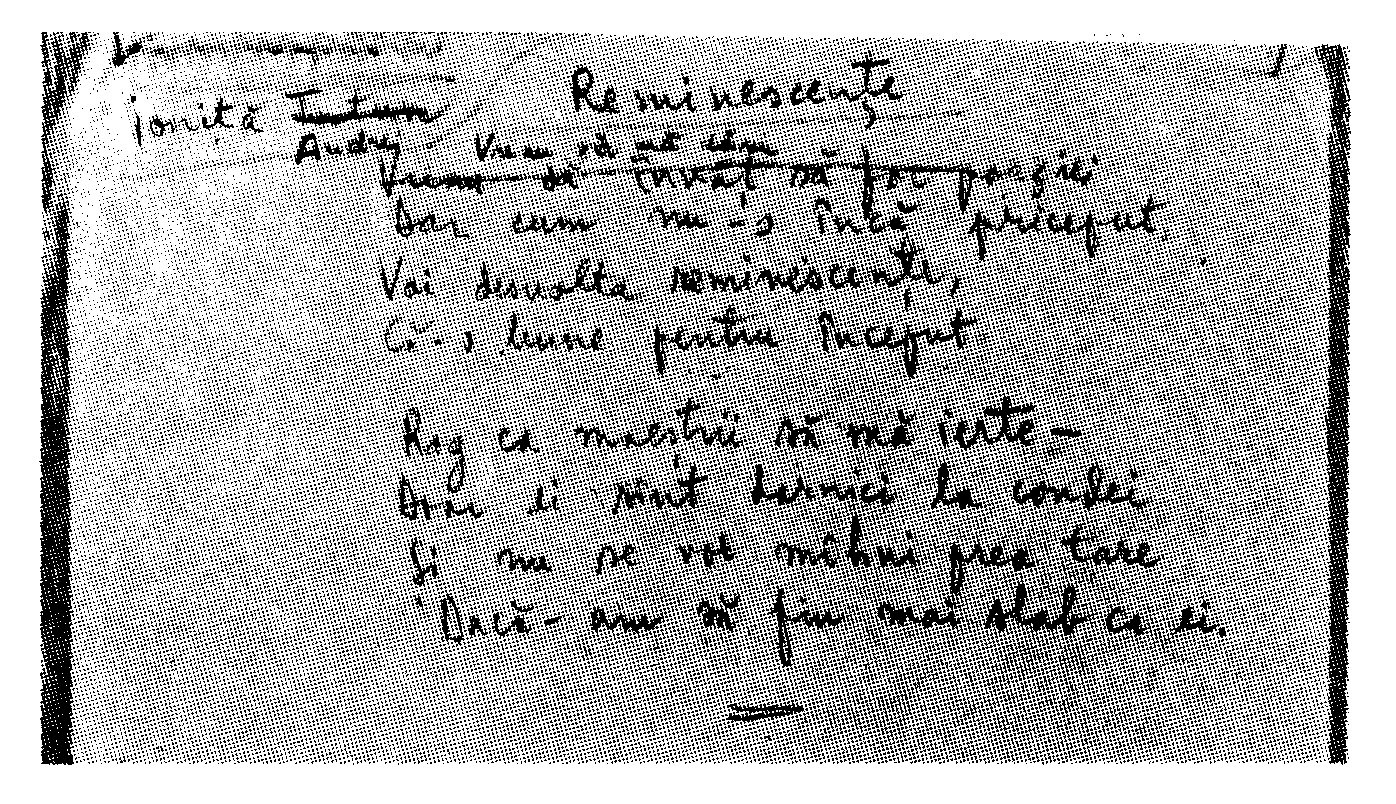 Reminescențe
Ioniță
Andrei
Vreau să
învăț să fac poezii
Dar cum nu-s încă priceput,
Voi desvolta reminescențe,
Că-s bune pentru început
Rog ca maeștrii să mă ierte-
Doar ei sînt darnici la condei
Și nu se vor mîhni prea tare
Dacă-am să fiu mai slab ca ei.